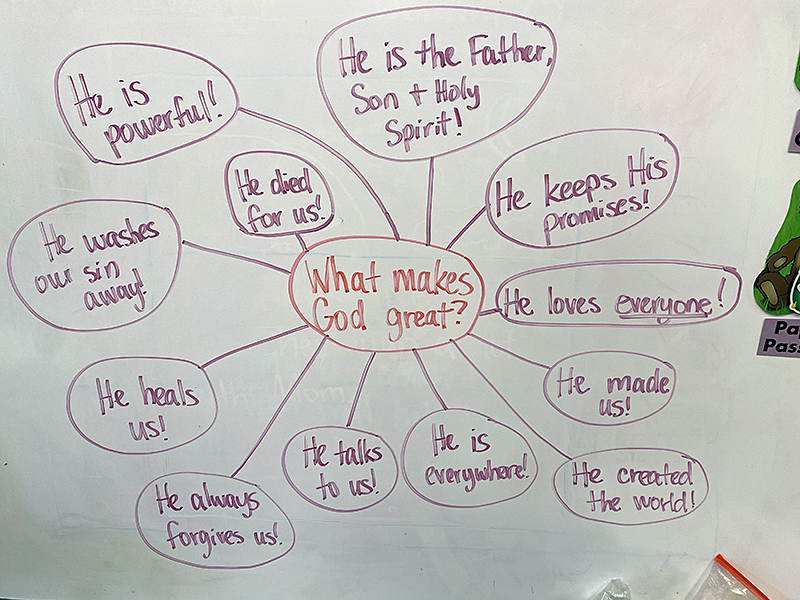 He is
powerful!
He is the Father,
Son + Holy
Spirit!
He died
for us!
He keeps His
promises!
He washes
our sin
away!
What makes
God great?
He loves everyone!
He heals
us!
He made
us!
He always
forgives us!
He talks
to us!
He is
everywhere!
He created
the world!